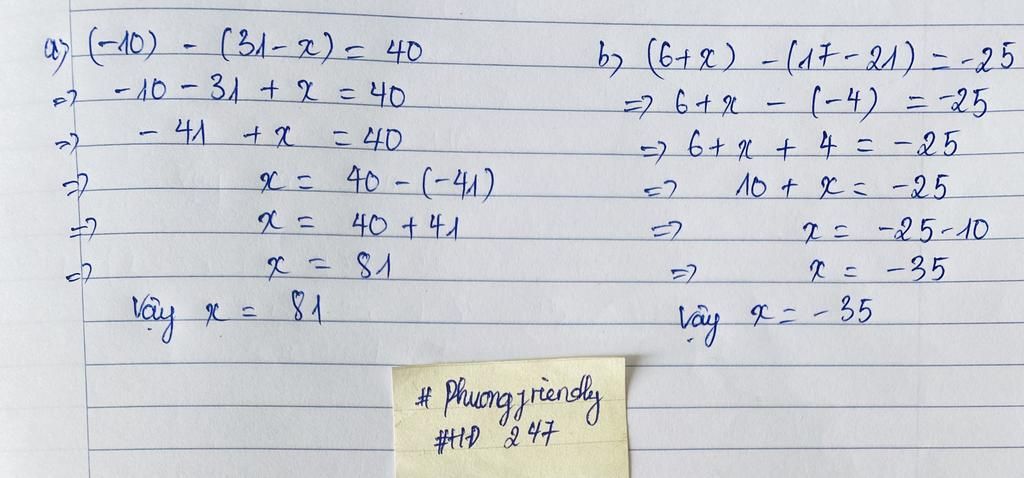 a) (-10) - (31 - x) = 40
=> -10 - 31 + x = 40
=> - 41 + x = 40
=> x = 40 - (-41)
=> x = 40 + 41
=> x = 81
Vậy x = 81
b) (6 + x) - (17 - 21) = -25
=> 6 + x - (-4) = -25
=> 6 + x + 4 = -25
=> 10 + x = -25
=> x = -25 - 10
=> x = -35
Vậy x = - 35
# Phuongfriendly
#HD 247